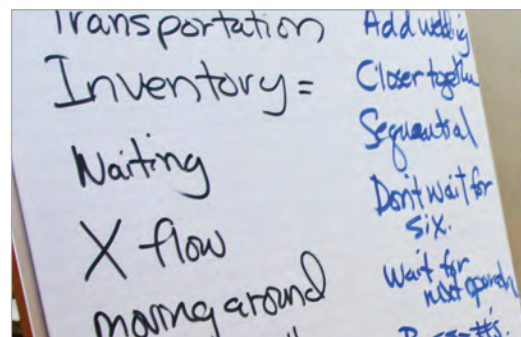 Transportation
Inventory =
Waiting
X flow
moving around
Add welding
Closer together
Sequential
Don't wait for
six.
Wait for
next
#'s.